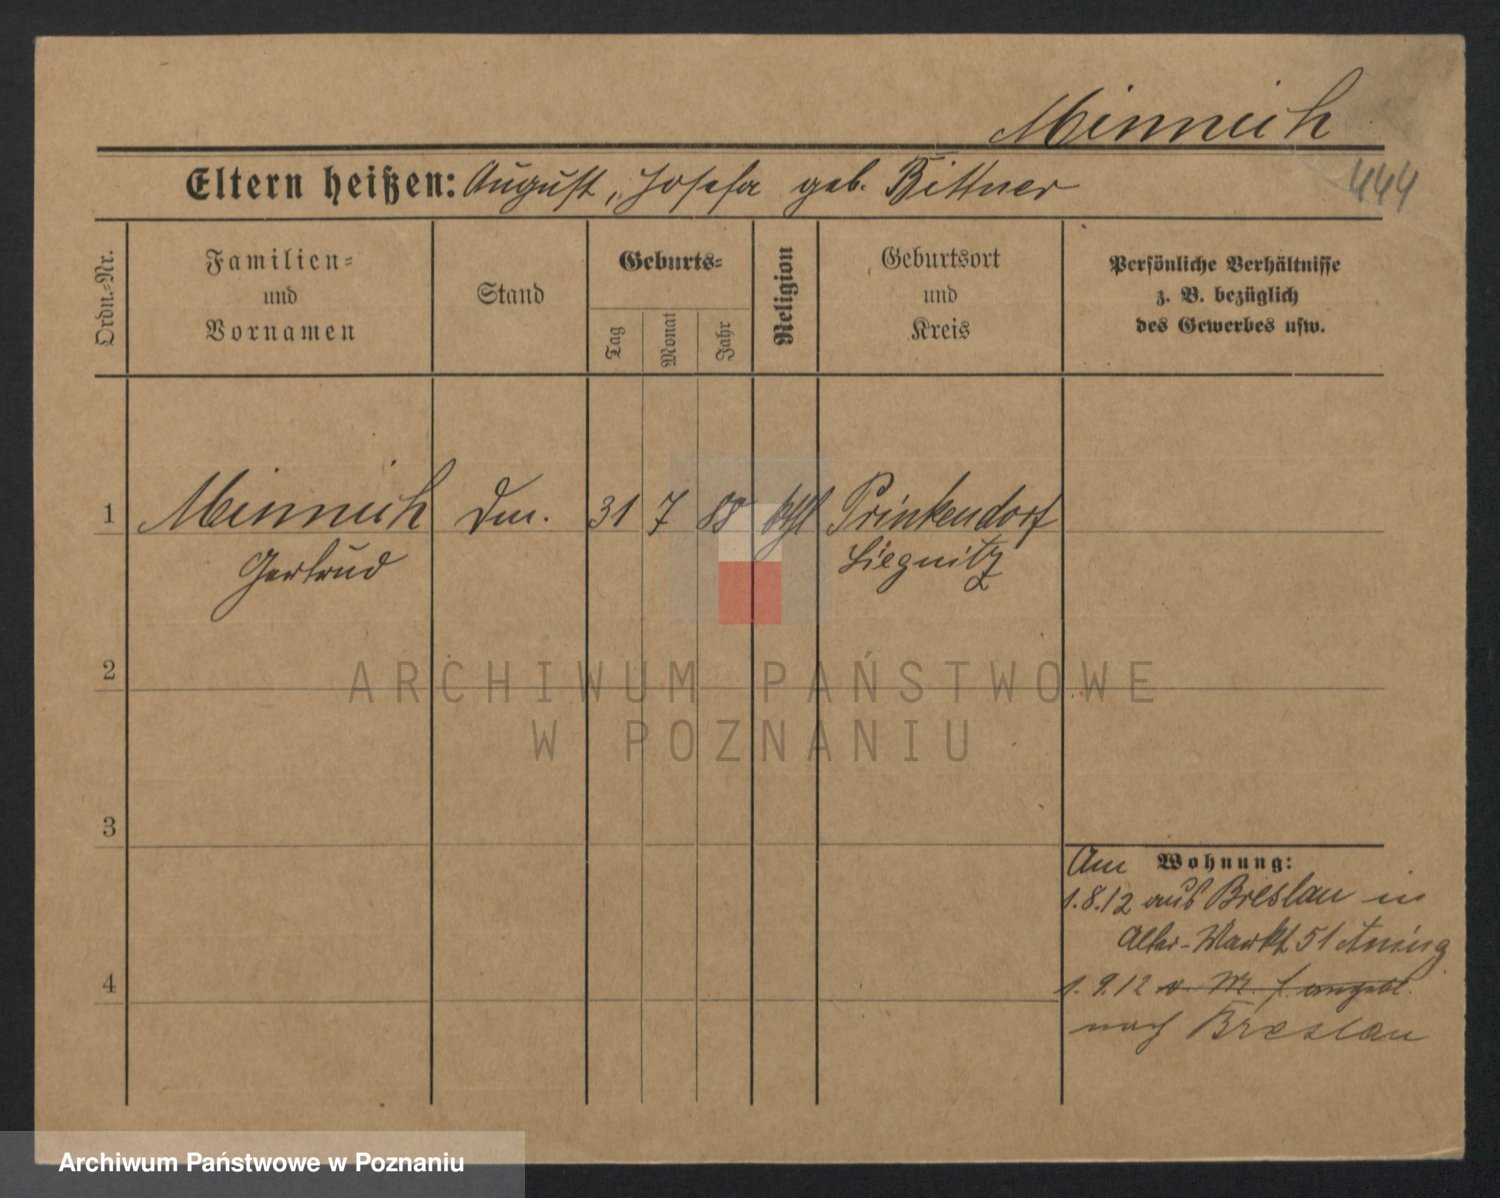 Minnich
Eltern heißen: August, Josefa geb. Bittner
444
Ordn.-Nr.
Familien-
und
Vornamen
Stand
Geburts-
Tag
Monat
Jahr
Religion
Geburtsort
und
Kreis
Persönliche Verhältnisse
z. B. bezüglich
des Gewerbes usw.
1 Minnich 31 7 88 kthl Prinkendorf
Gertrud Liegnitz
2
ARCHIWUM PAŃSTWOWE
W POZNANIU
3
Am Wohnung:
1.8.12 aus Breslau in
Alter-Markt 51
4
1.9.12
nach Breslau
Archiwum Państwowe w Poznaniu